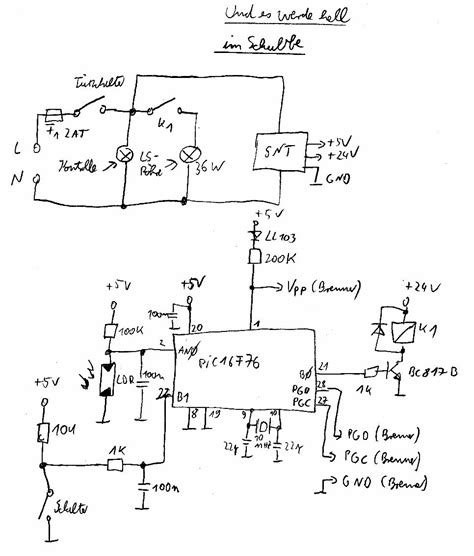 Und es werde hell
im Schubbe
Türschalter
F1 2AT
K1
L
N
Kontrolle
LS-
Röhre
36W
SNT
+5V
+24V
GND
+5V
LL103
200K
Vpp (Brenner)
+5V
100n
20
1
+24V
K1
+5V
100K
2
AN0
PiC16F76
B0
21
1k
BC817B
LDR
100n
22
B1
PGD
28
PGC
27
8
19
9
10
+5V
10k
1K
100n
Schalter
22p
10
MHz
22p
PGD (Brenner)
PGC (Brenner)
GND (Brenner)